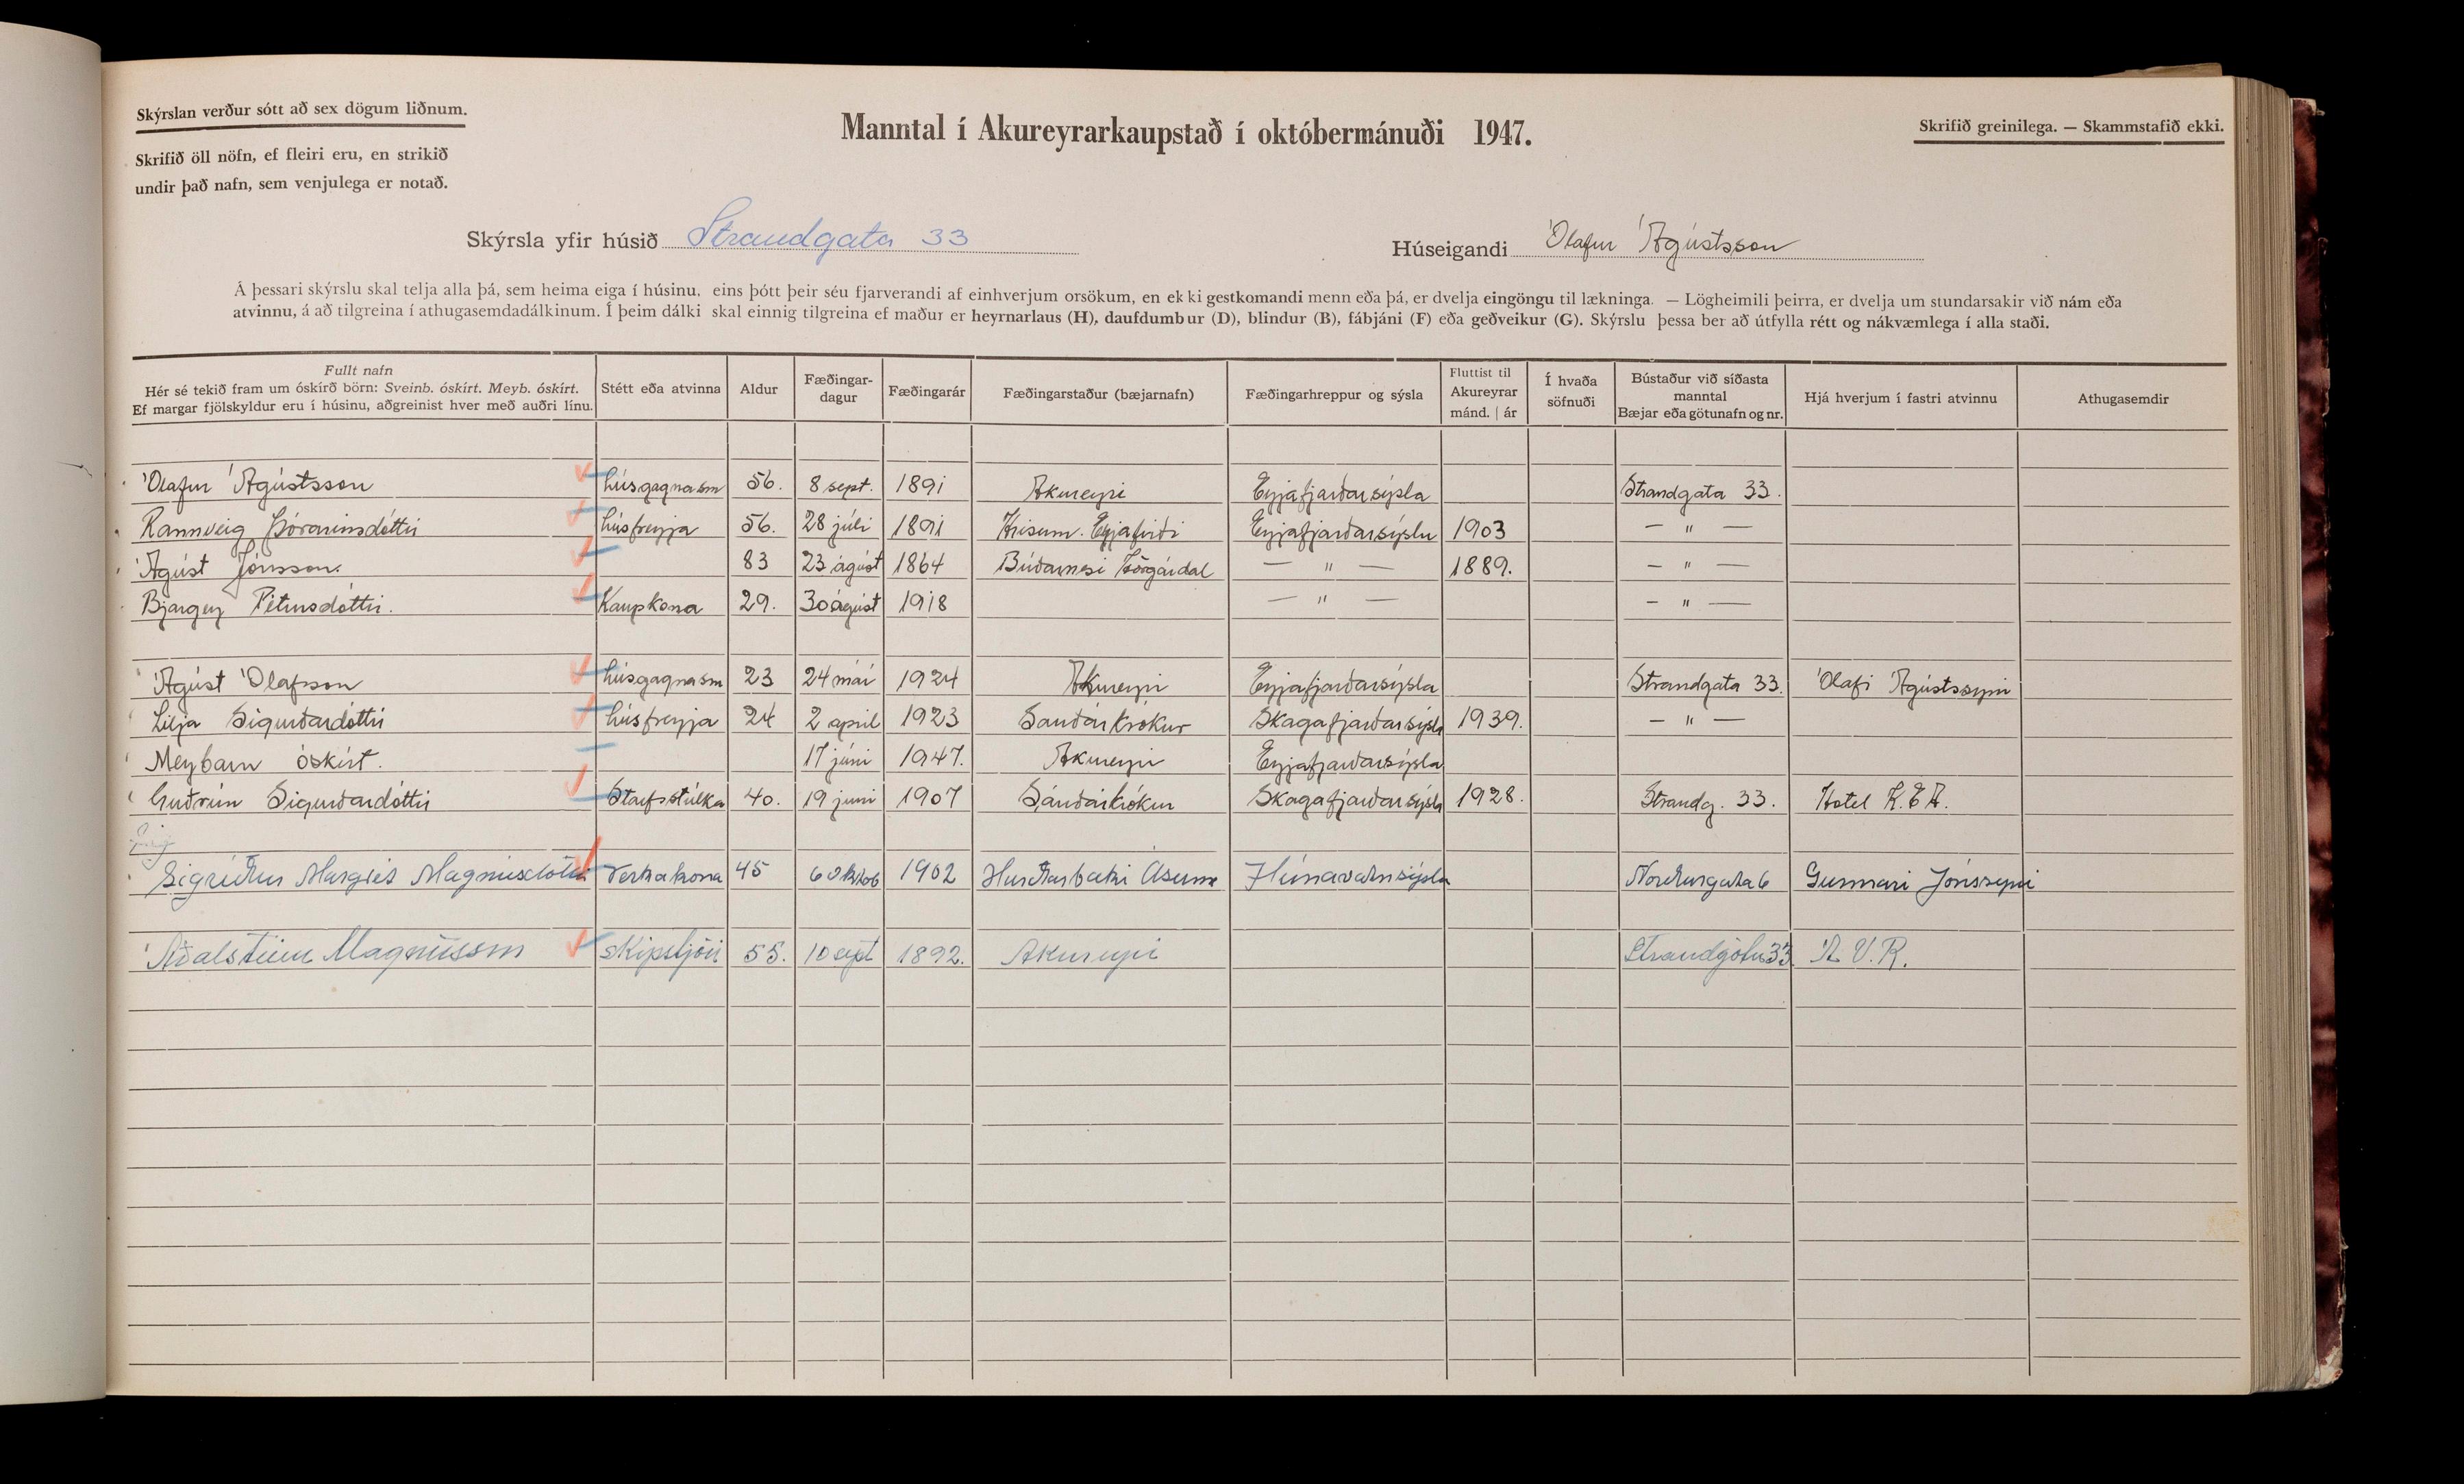 Skýrslan verður sótt að sex dögum liðnum.
Skrifið öll nöfn, ef fleiri eru, en strikið
undir það nafn, sem venjulega er notað.
Manntal í Akureyrarkaupstað í októbermánuði 1947.
Skrifið greinilega. — Skammstafið ekki.
Skýrsla yfir húsið Strandgata 33
Húseigandi Ólafur Ágústsson
Á þessari skýrslu skal telja alla þá, sem heima eiga í húsinu, eins þótt þeir séu fjarverandi af einhverjum orsökum, en ekki gestkomandi menn eða þá, er dvelja eingöngu til lækninga. — Lögheimili þeirra, er dvelja um stundarsakir við nám eða
atvinnu, á að tilgreina í athugasemdadálkinum. Í þeim dálki skal einnig tilgreina ef maður er heyrnarlaus (H), daufdumbur (D), blindur (B), fábjáni (F) eða geðveikur (G). Skýrslu þessa ber að útfylla rétt og nákvæmlega í alla staði.
Fullt nafn
Hér sé tekið fram um óskírð börn: Sveinb. óskírt. Meyb. óskírt.
Ef margar fjölskyldur eru í húsinu, aðgreinist hver með auðri línu.
Stétt eða atvinna
Aldur
Fæðingar-
dagur
Fæðingarár
Fæðingarstaður (bæjarnafn)
Fæðingarhreppur og sýsla
Fluttist til
Akureyrar
mánd. | ár
Í hvaða
söfnuði
Bústaður við síðasta
manntal
Bæjar eða götunafn og nr.
Hjá hverjum í fastri atvinnu
Athugasemdir
Ólafur Ágústsson húsgagnasm 56. 8 sept. 1891 Akureyri Eyjafjarðarsýsla Strandgata 33.
Rannveig Þórarinsdóttir húsfreyja 56. 28 júli 1891 Hrisum. Eyjafirði Eyjafjarðarsýslu 1903 — " —
Ágúst Jónsson. 83 23 ágúst 1864 Búðarnesi Hörgárdal — " — 1889. — " —
Bjargey Pétursdóttir. Kaupkona 29. 30 ágúst 1918 — " — — " —
Ágúst Ólafsson húsgagnasm 23 24 mái 1924 Akureyri Eyjafjarðarsýsla Strandgata 33. Ólafi Ágústssyni
Lilja Sigurðardóttir húsfreyja 24 2 april 1923 Sauðárkrókur Skagafjarðarsýsla 1939. — " —
Meybarn óskírt. 17 júni 1947. Akureyri Eyjafjarðarsýsla
Guðrún Sigurðardóttir Starfsstúlka 40. 19 juni 1907 Sauðárkrókur Skagafjarðarsýsla 1928. Strandg. 33. Hotel K.E.A.
Sigríður Margrét Magnúsdóttir Verkakona 45 6 oktob 1902 Hurðarbaki Ásum Húnavatnsýsla Norðurgata 6 Gunnari Jónssyni
Aðalsteinn Magnússon skipstjóri 55. 10 sept 1892. Akureyri Strandgötu 33 Á.V.R.